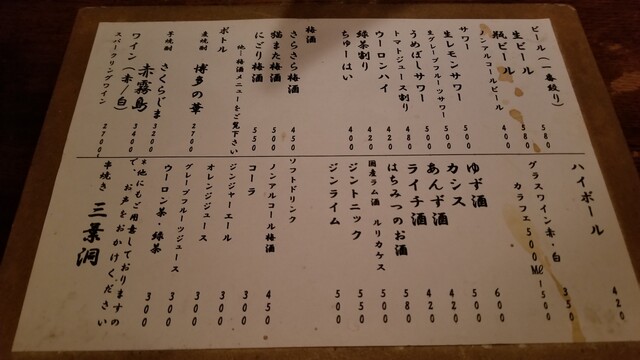 ビール(一番絞り)
生ビール 580
瓶ビール 580
ノンアルコールビール 400
サワー
生レモンサワー 500
生グレープフルーツサワー 500
うめぼしサワー 480
トマトジュース割り 480
ウーロンハイ 420
緑茶割り 420
ちゅーはい 400
梅酒
さらさら梅酒 450
猫また梅酒 500
にごり梅酒 550
他、梅酒メニューをご覧下さい
ボトル
麦焼酎 博多の華 2700
芋焼酎 さくらじま 3200
赤霧島 3400
ワイン(赤/白)
スパークリングワイン 2700
ハイボール 420
グラスワイン赤・白 350
カラフェ500Ml 1500
ゆず酒 500
カシス 420
あんず酒 420
ライチ酒 480
はちみつのお酒 580
国産ラム酒 ルリカケス 500
ジントニック 550
ジンライム 500
ソフトドリンク
ノンアルコール梅酒 450
コーラ 300
ジンジャーエール 300
オレンジジュース 300
グレープフルーツジュース 300
ウーロン茶・緑茶 300
*他にもご用意しておりますの
で、お声をおかけください
串焼き 三葉洞